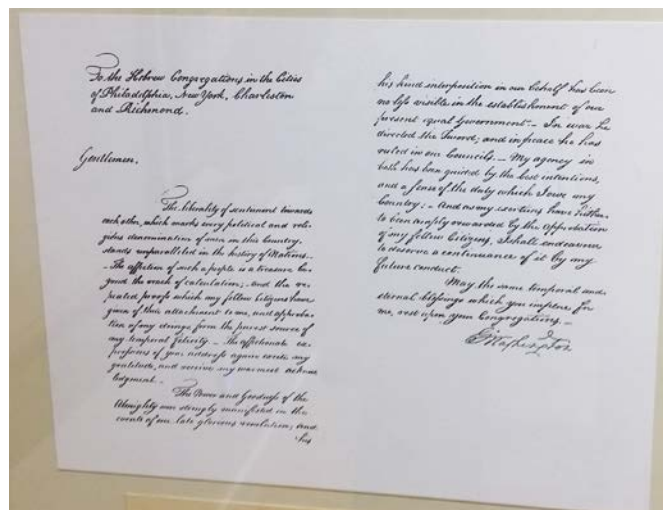 To the Hebrew Congregations in the Cities
of Philadelphia, New York, Charleston
and Richmond.
Gentlemen,
The liberality of sentiment towards
each other, which marks every political and reli-
gious denomination of men in this Country,
stands unparalleled in the history of Nations.
The affection of such a people is a treasure be-
yond the reach of calculation; and the re-
peated proofs which my fellow Citizens have
given of their attachment to me, and approba-
tion of my doings form the purest source of
my temporal felicity. - The affectionate ex-
pressions of your address again excite my
gratitude, and receive my warmest acknow-
ledgement. -
The Power and Goodness of the
Almighty were strongly manifested in the
events of our late glorious revolution; and
his
his kind interposition in our behalf has been
no less visible in the establishment of our
present equal Government. - In war he
directed the Sword; and in peace he has
ruled in our Councils. - My agency in
both has been guided by the best intentions,
and a sense of the duty which I owe my
Country: - And as my exertions have hither-
to been amply rewarded by the approbation
of my fellow Citizens, I shall endeavour
to deserve a continuance of it by my
future conduct.
May the same temporal and
eternal blessings which you implore for
me, rest upon your Congregations. -
G. Washington